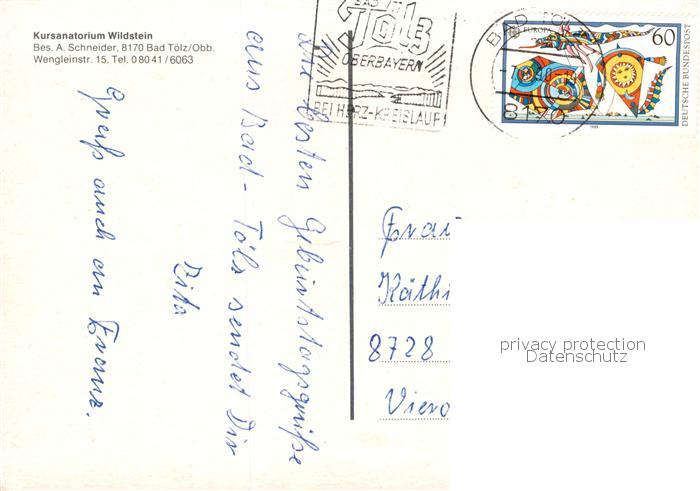 Kursanatorium Wildstein
Bes. A. Schneider, 8170 Bad Tölz/Obb.
Wengleinstr. 15, Tel. 0 80 41 / 6063
BAD
TÖLZ
OBERBAYERN
BEI HERZ-KREISLAUF
BAD TÖL
8170
EUROPA
60
DEUTSCHE BUNDESPOST
Die besten Geburtstagsgrüße
aus Bad-Tölz sendet Dir
Rita
Gruß auch an Franz.
Frau
Käthi
8728
privacy protection
Datenschutz